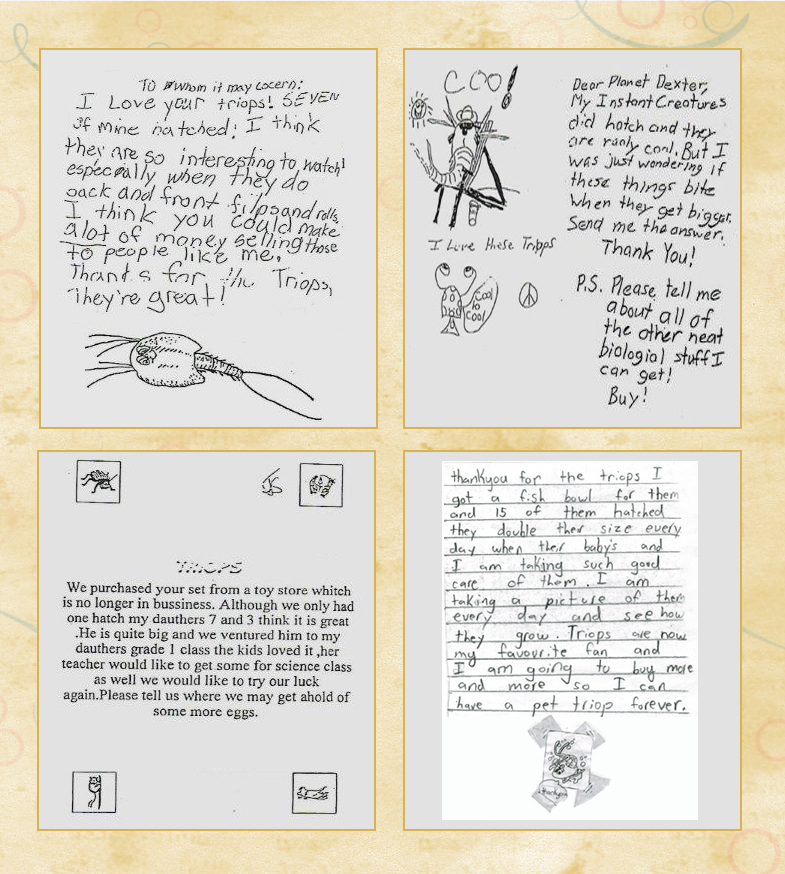 TO Whom it may cocern:
I Love your triops! SEVEN
of mine hatched! I think
they are so interesting to watch!
especially when they do
back and front filps and rolls.
I think you could make
a lot of money selling those
to people like me.
Thanks for the Triops,
They're great!
COOl!
I Love these Triops
Cool
to
Cool
Dear Planet Dexter,
My Instant Creatures
did hatch and they
are realy cool. But I
was just wondering if
these things bite
when they get bigger.
Send me the answer.
Thank You!
P.S. Please tell me
about all of
the other neat
biologial stuff I
can get!
Buy!
TRIOPS
We purchased your set from a toy store whitch
is no longer in bussiness. Although we only had
one hatch my dauthers 7 and 3 think it is great
.He is quite big and we ventured him to my
dauthers grade 1 class the kids loved it ,her
teacher would like to get some for science class
as well we would like to try our luck
again.Please tell us where we may get ahold of
some more eggs.
thankyou for the triops I
got a fish bowl for them
and 15 of them hatched
they double their size every
day when their baby's and
I am taking such good
care of them. I am
taking a picture of them
every day and see how
they grow. Triops are now
my favourite fan and
I am going to buy more
and more so I can
have a pet triop forever.